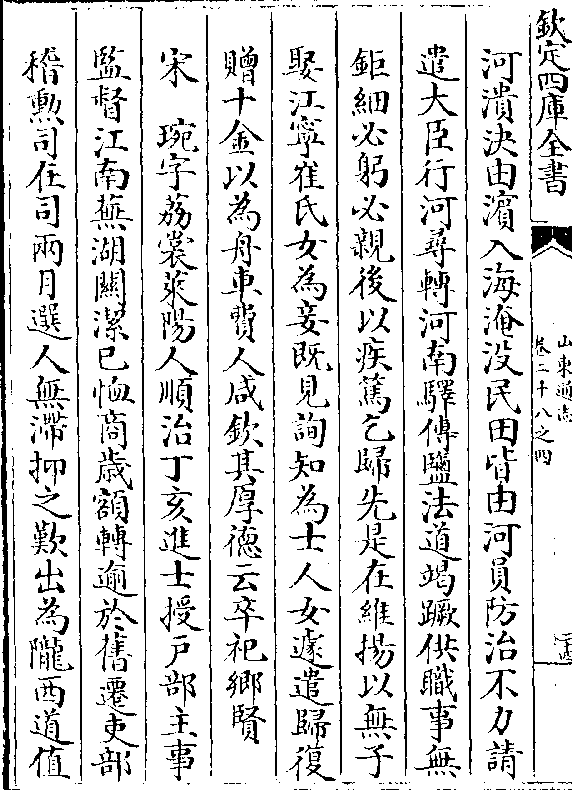 欽定四庫全書
山東通志
卷二十八之四
河潰決由濱入海淹没民田皆由河員防治不力請
遣大臣行河尋轉河南驛傳鹽法道竭蹶供職事無
鉅細必躬必親後以疾篤乞歸先是在維揚以無子
娶江寧崔氏女為妾既見詢知為士人女遽遣歸復
贈十金以為舟車費人咸欽其厚德云卒祀鄉賢
宋 琬字荔裳萊陽人順治丁亥進士授戸部主事
監督江南蕪湖關潔已恤商歳額轉逾於舊遷吏部
稽勲司在司兩月選人無滯抑之歎出為隴西道值